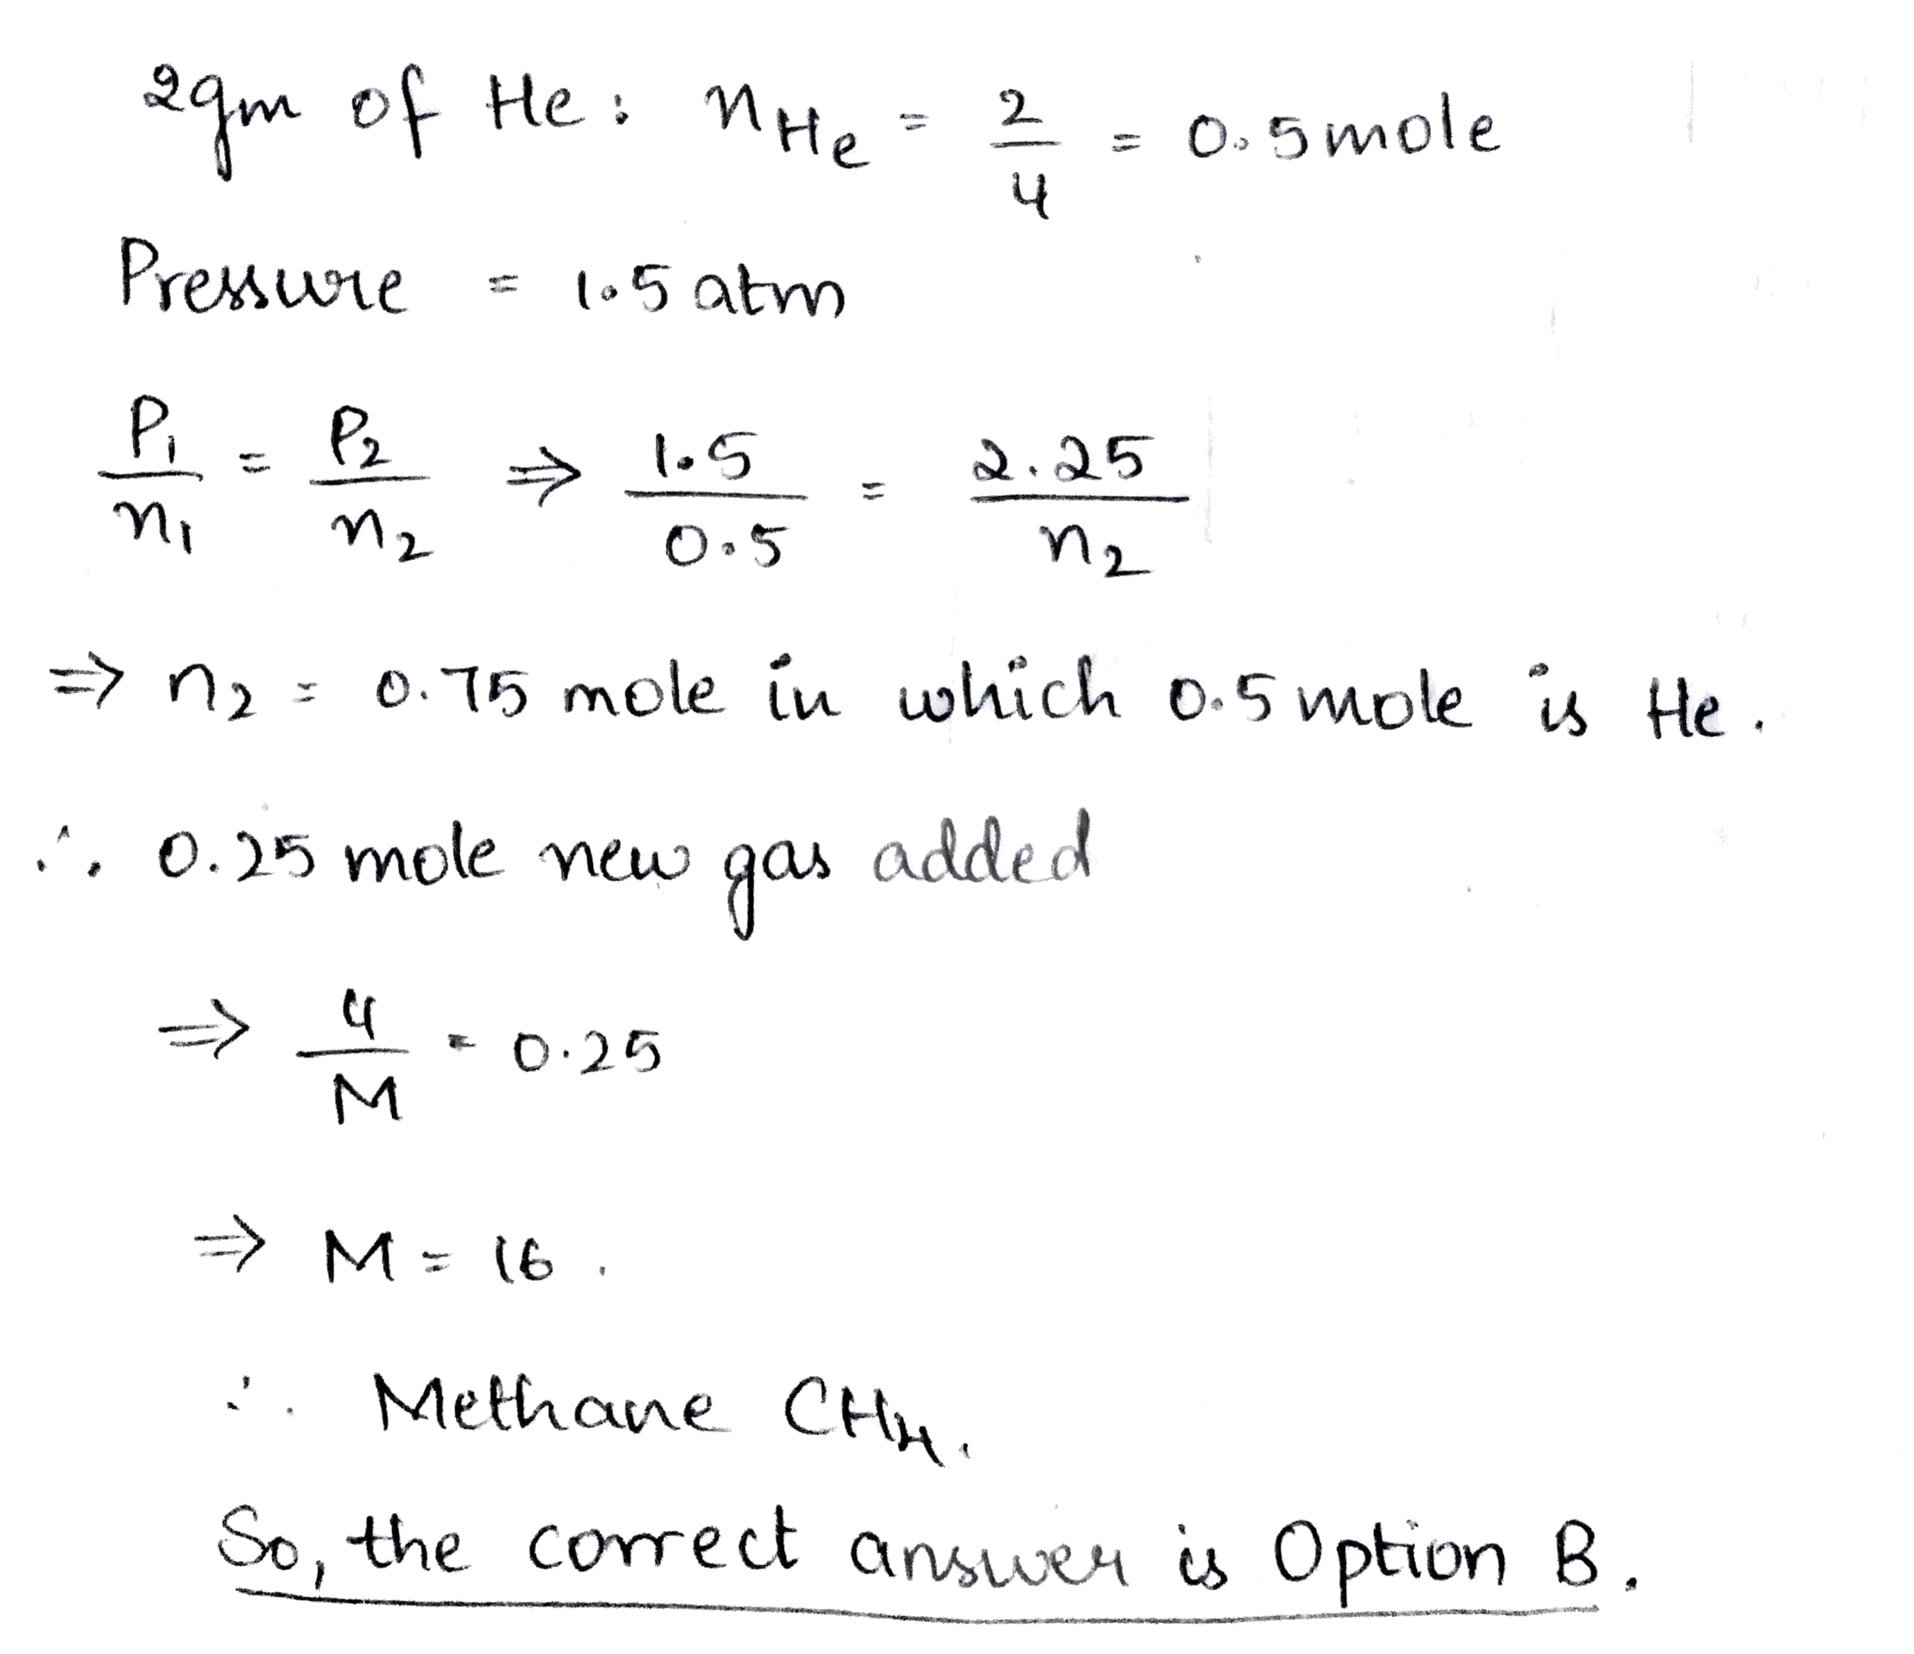 2gm of He : nHe = 2/4 = 0.5 mole
Pressure = 1.5 atm
P1/n1 = P2/n2 ⇒ 1.5/0.5 = 2.25/n2
⇒ n2 = 0.75 mole in which 0.5 mole is He.
∴ 0.25 mole new gas added
⇒ 4/M = 0.25
⇒ M = 16.
∴ Methane CH4.
So, the correct answer is Option B.